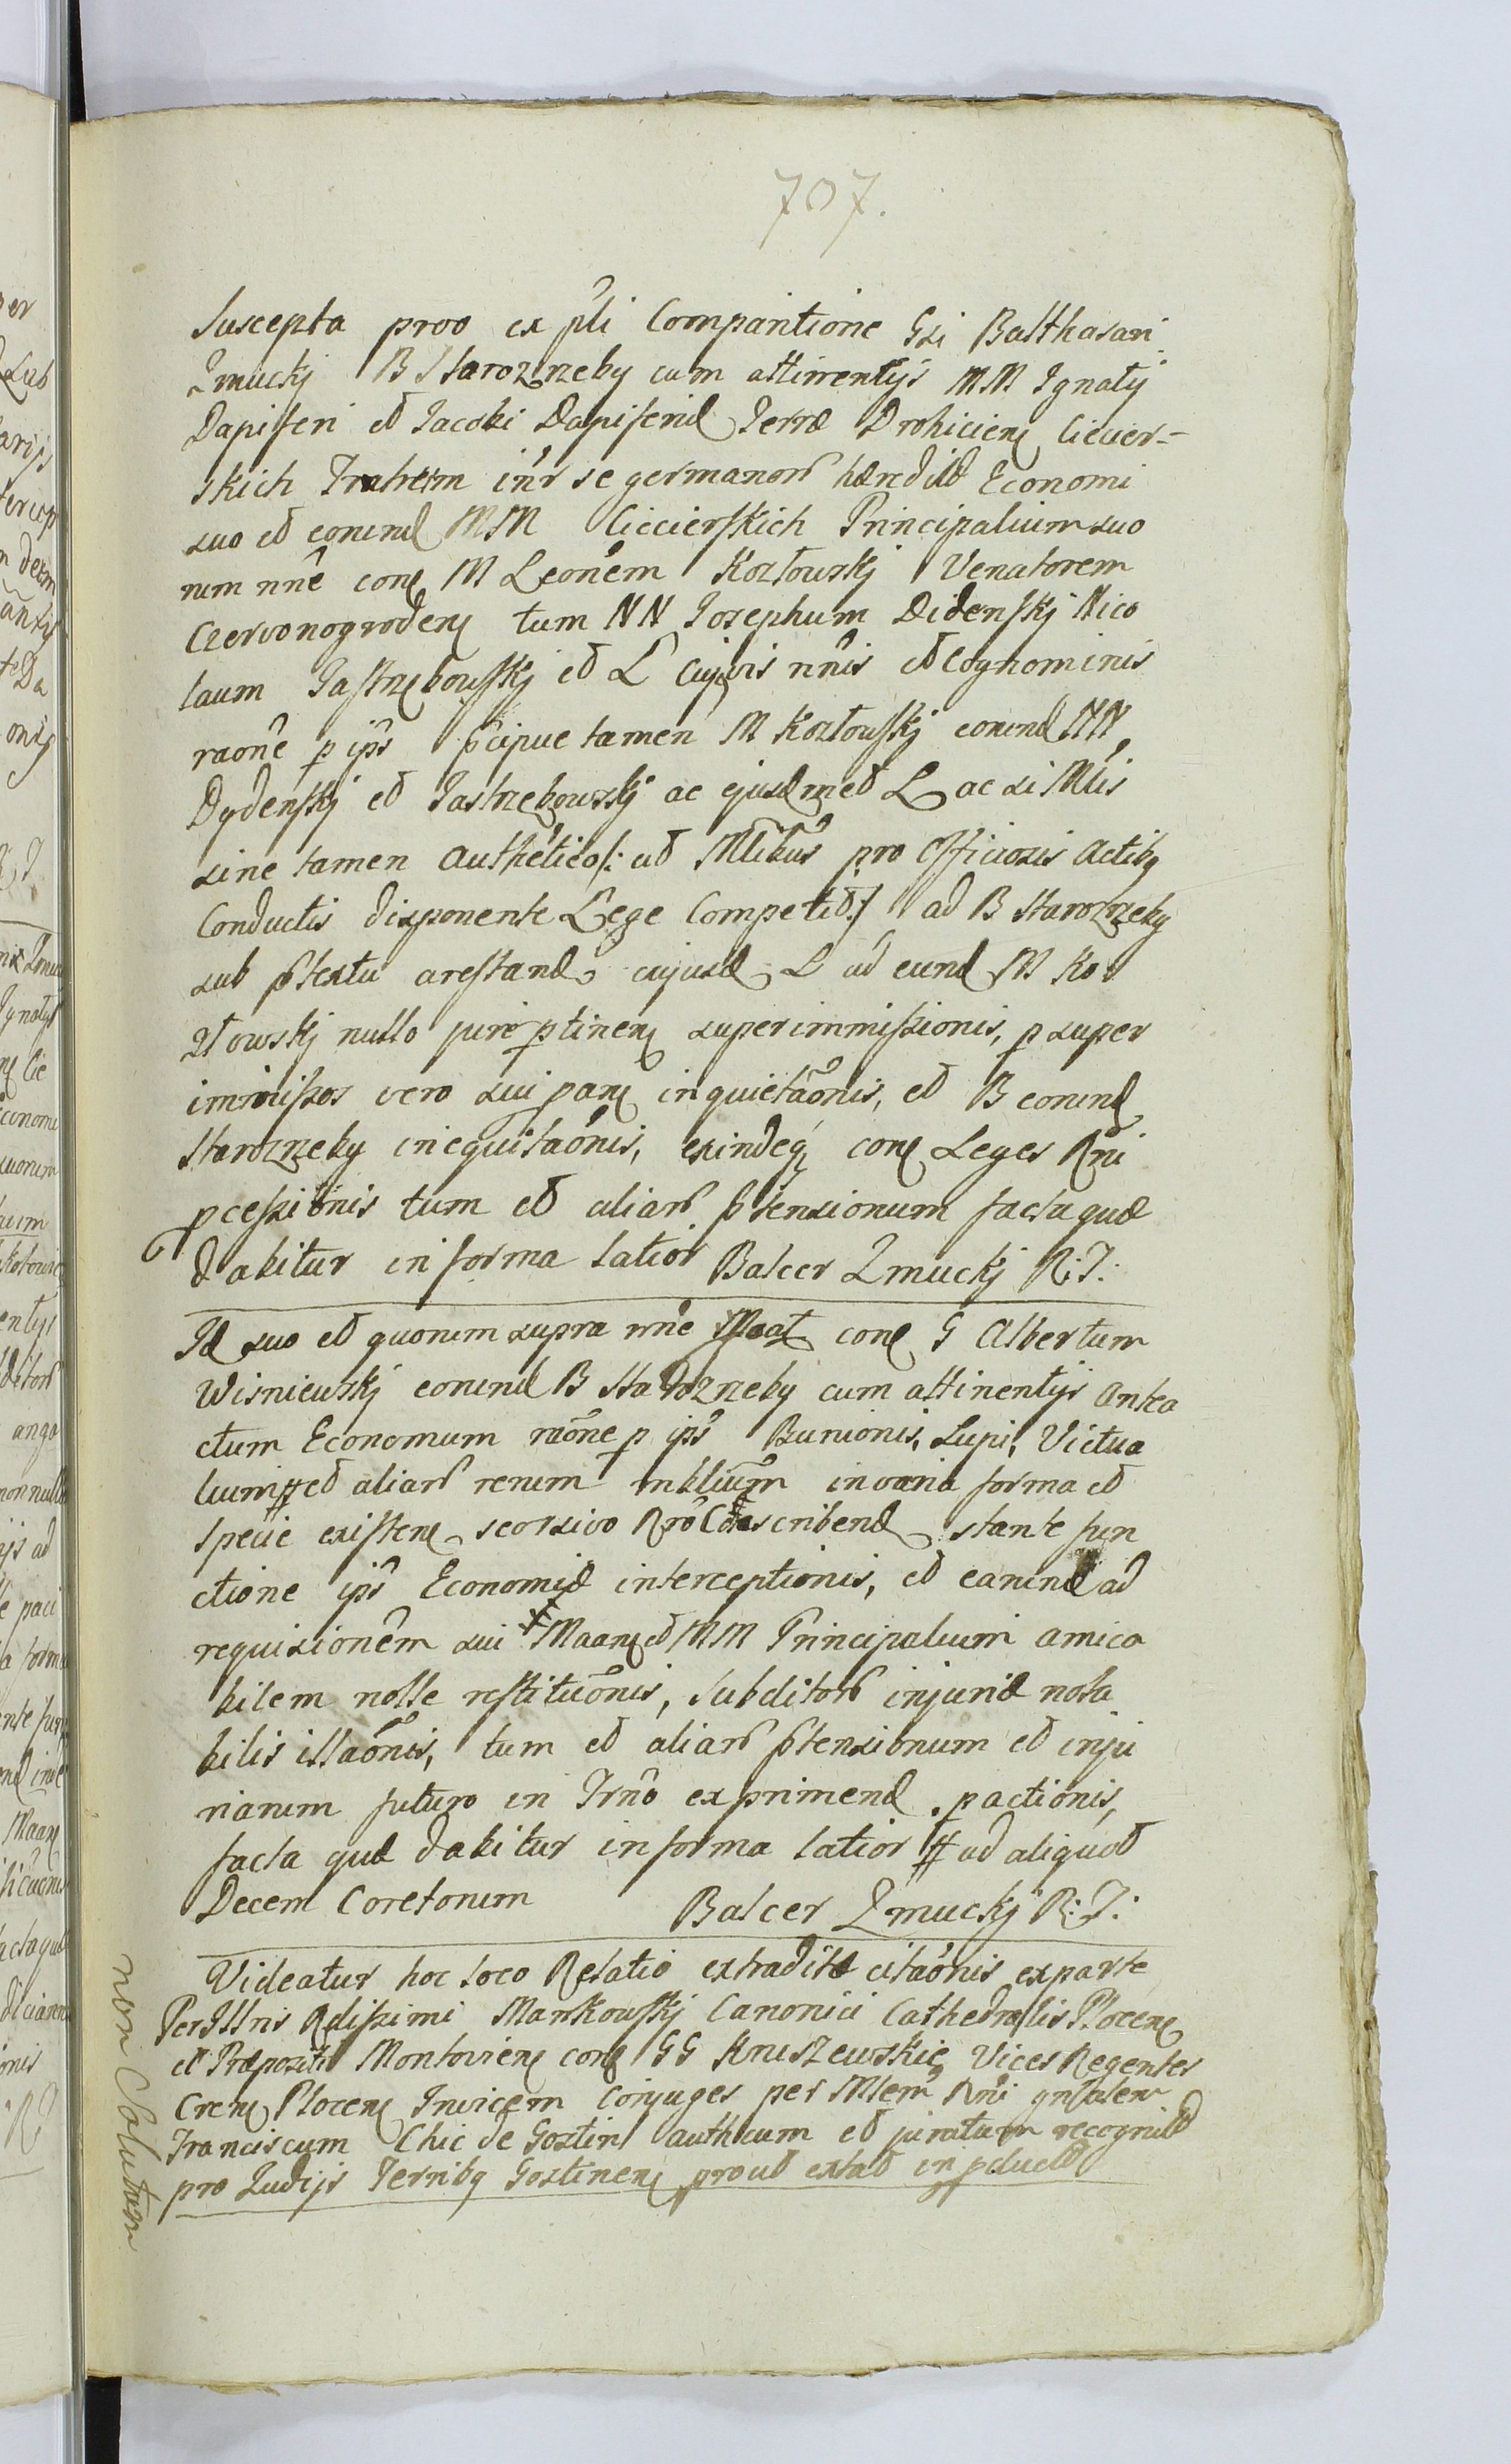 707.
Suscepta proo ex pñli Comparitione Gsi Balthasari
Zmuckj B Starozrzeby cum attinentijs MM Ignatij
Dapiferi et Jacobi Dapiferid Terræ Drohiciens Ciecier-
skich Fratrum intr se germanorum hæredit Economi
suo et eorund MM Ciecierskich Principalium suo
rum nñe cons M Leonem Kozłowskj Venatorem
Czerwonogrodens tum NN Josephum Didenskj Nico
laum Jastrzębowskj et L cujvis nñis et cognominis
raone p ips pcipue tamen M Kozłowskj eorund NN
Dydenskj et Jastrzębowskj ac ejusdmet L ac si Mlis
sine tamen authetico /: ut Mlibus pro officiosis actibq
Conductis disponente Lege Competit :/ ad B Starozrzeby
sub ptextu arestand cujusd L ad eund M Ko
złowskj nullo jure ptinens superimmissionis, p super
immissos vero sui pans inquietaonis, et B eorund
Starozrzeby inequitaonis, exindeq cons Leges Rñi
pcessionis tum et aliarum ptensionum facta quæ
dabitur in forma latior Balcer Zmuckj R: T:
Id suo et quorum supra nñe cons G Albertum
Wisniewskj eorund B Starozrzeby cum attinentijs antea
ctum Economum raone p ips Bunionis, Lupi, Victua
lium # et aliarum rerum mblium in varia forma et
specie existens seorsivo describend stante fun
ctione ips Economiæ interceptionis, et earund ad
requisionem sui Maans et MM Principalium amica
bilem nolle restituonis, subditorum injuriæ nota
bilis illaonis, tum et aliarum ptensionum et inju
riarum futuro in Trño exprimend pactionis,
facta quæ dabitur in forma latior # ad aliquot
Decem Coretorum Balcer Zmuckj R: T:
Videatur hoc loco Relatio extraditæ citaonis ex parte
Perillris Rdissimi Mankowskj Canonici Cathedralis Plocens
et Præpositi Montoviens cons GG Kruszewskie Vices Regentes
Crens Plocens Invicem Conjuges per Mlem Rñi gnralem
Franciscum Chic de Gostin authcum et juratum recognit
pro Judijs Terribq Gostinens prout extat in pducto
non Solutum